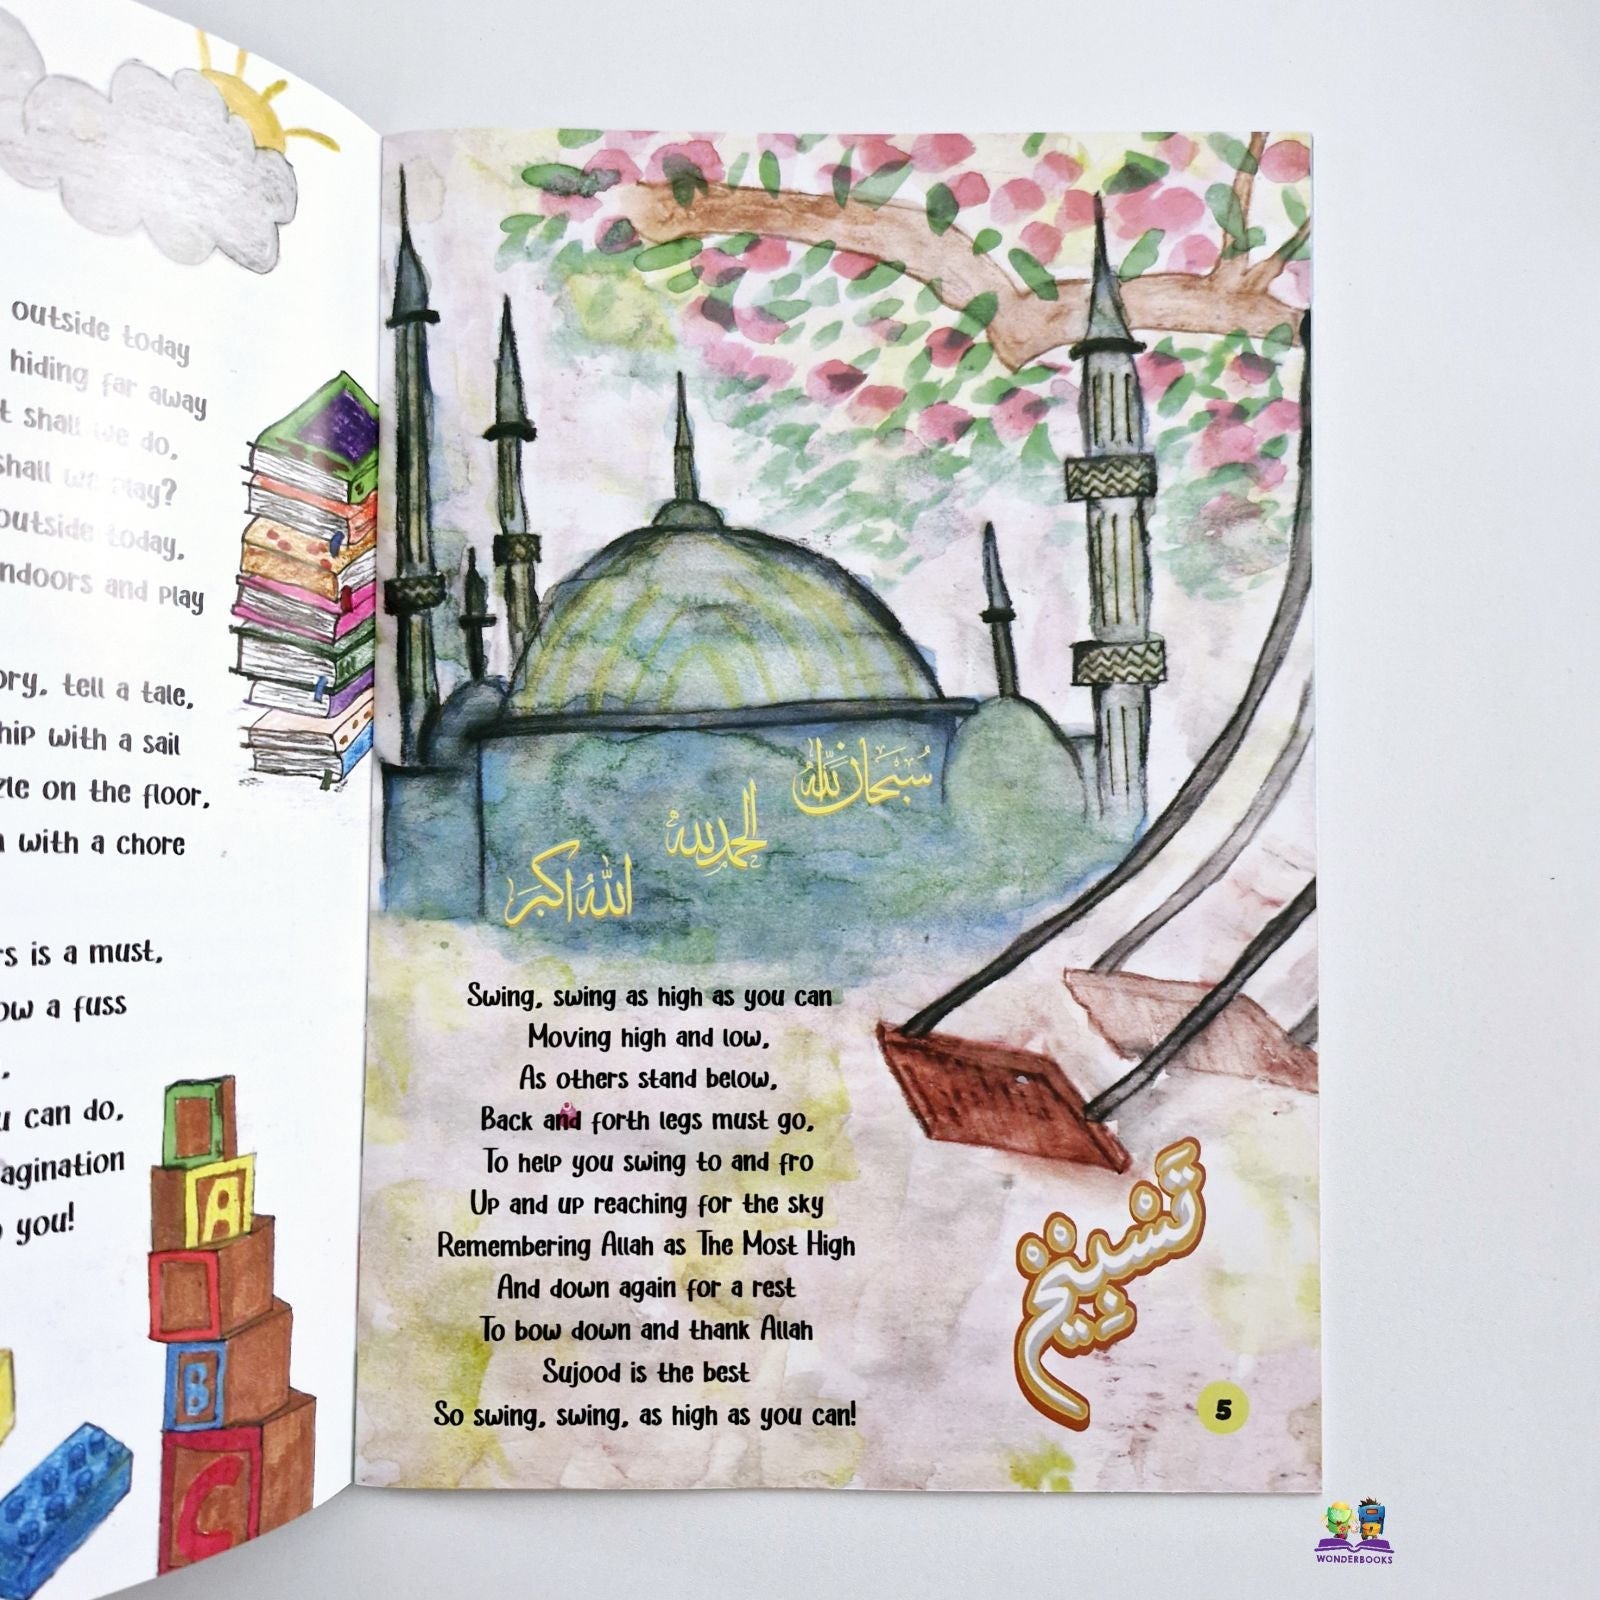 outside today
hiding far away
shall we do,
shall we play?
outside today,
and play
tell a tale,
with a sail
on the floor,
with a chore
is a must,
a fuss
can do,
you!
A
B
C
سُبْحَانَ اللّٰه
الحمدلله
اللهُ اكبَر
Swing, swing as high as you can
Moving high and low,
As others stand below,
Back and forth legs must go,
To help you swing to and fro
Up and up reaching for the sky
Remembering Allah as The Most High
And down again for a rest
To bow down and thank Allah
Sujood is the best
So swing, swing, as high as you can!
تَسْبِيْحْ
5
WONDERBOOKS